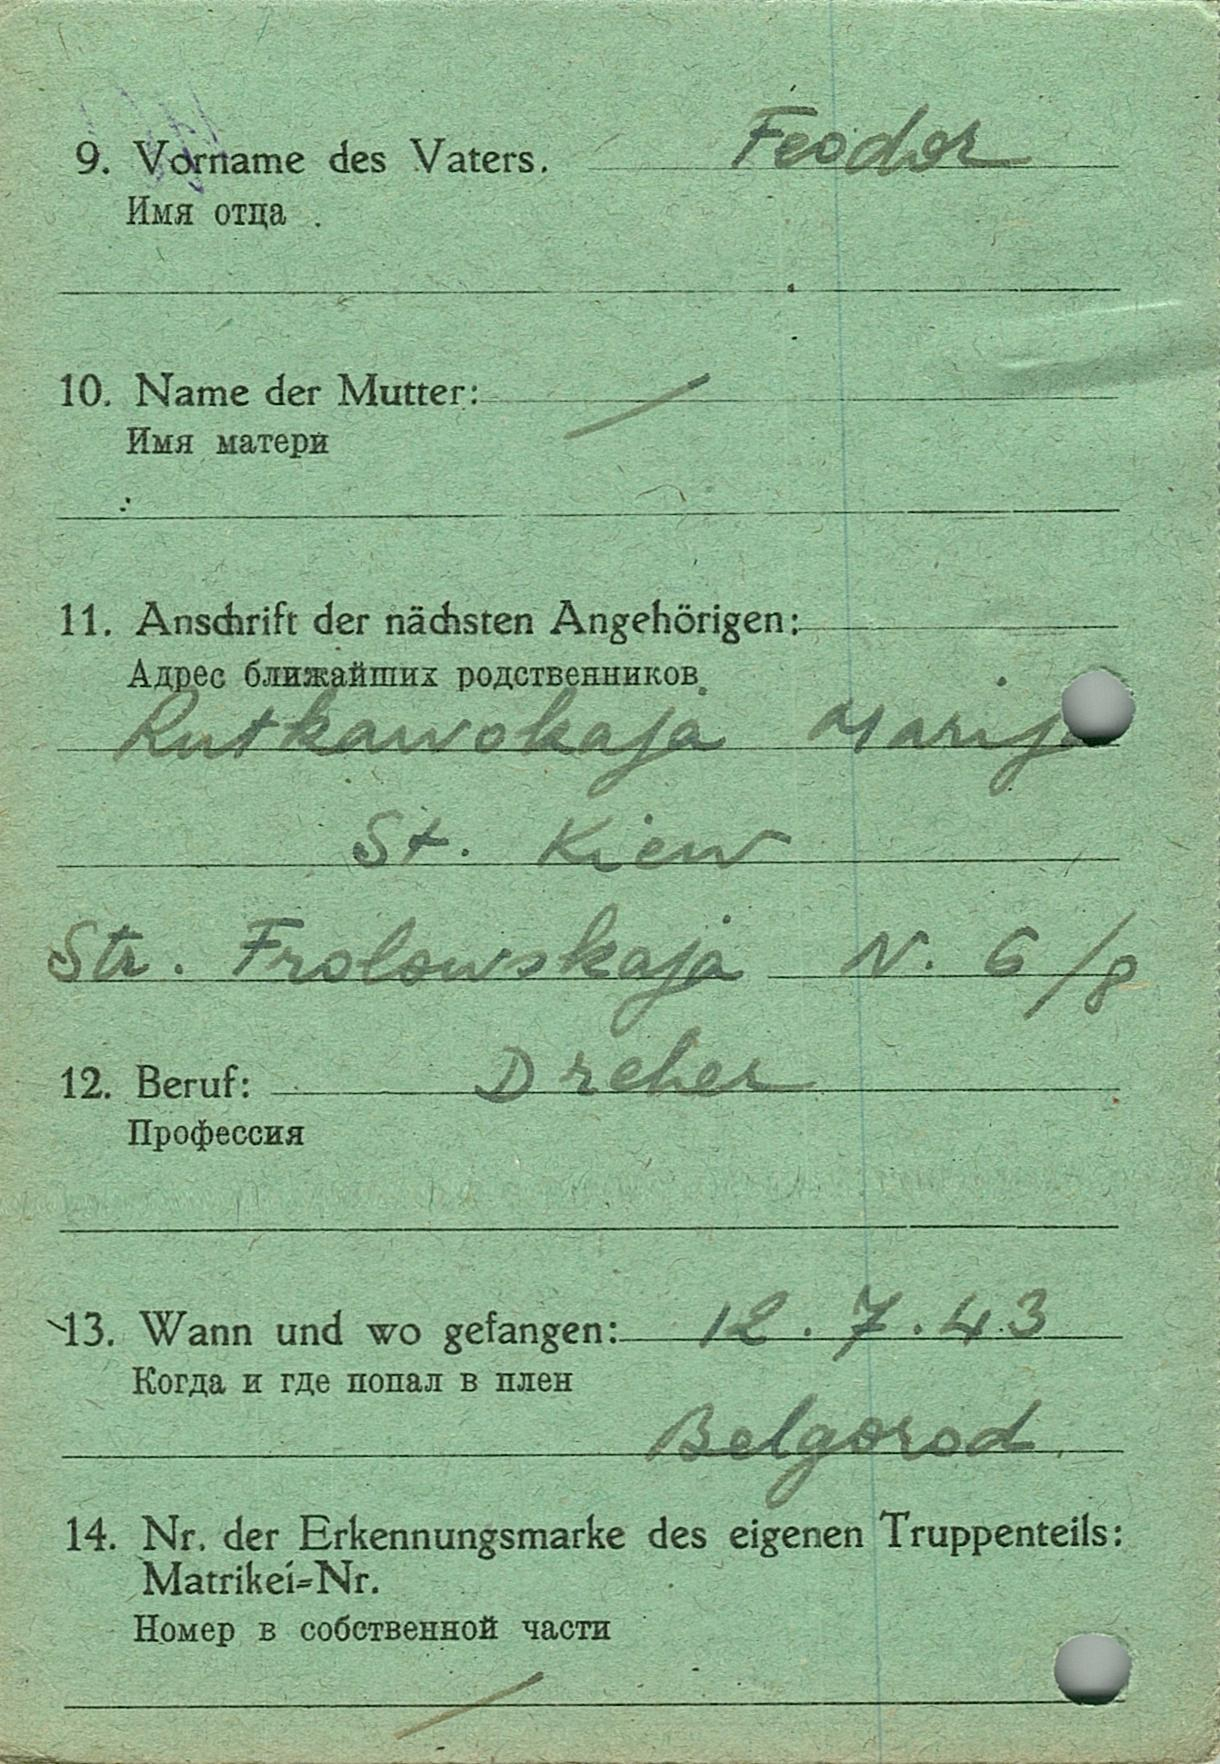 9. Vorname des Vaters. Feodor
Имя отца
10. Name der Mutter: /
Имя матери
11. Anschrift der nächsten Angehörigen:
Адрес ближайших родственников
Rutkawskaja Marija
St. Kiew
Str. Frolowskaja N. 6/8
12. Beruf: Dreher
Профессия
13. Wann und wo gefangen: 12.7.43
Когда и где попал в плен
Belgorod.
14. Nr. der Erkennungsmarke des eigenen Truppenteils:
Matrikei=Nr.
Номер в собственной части
/